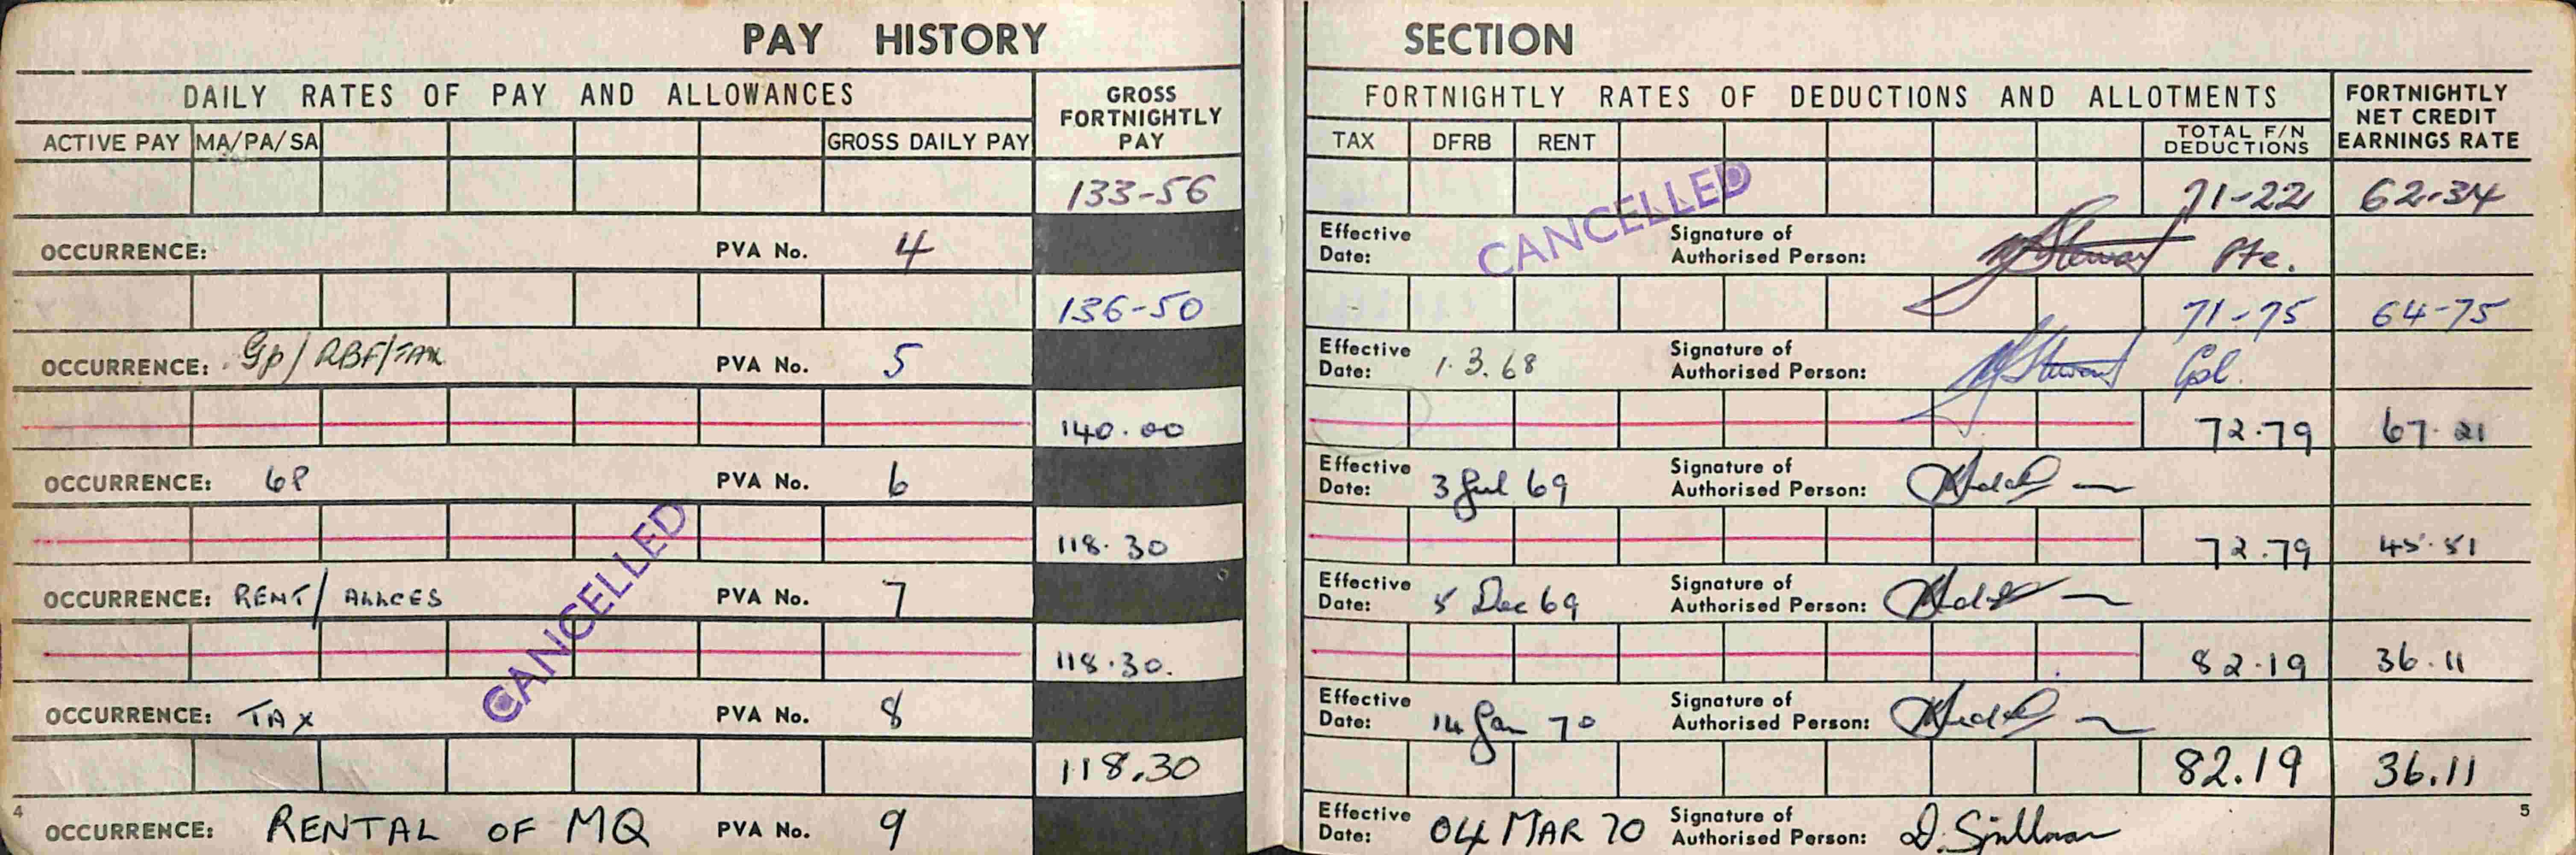 PAY HISTORY SECTION
DAILY RATES OF PAY AND ALLOWANCES
GROSS FORTNIGHTLY PAY
ACTIVE PAY MA/PA/SA GROSS DAILY PAY
133-56
OCCURRENCE: PVA No. 4
136-50
OCCURRENCE: Gp/ RBF/TAX PVA No. 5
140.00
OCCURRENCE: GP PVA No. 6
118.30
OCCURRENCE: RENT/ ALLCES PVA No. 7
118.30.
OCCURRENCE: TAX PVA No. 8
118.30
4
OCCURRENCE: RENTAL OF MQ PVA No. 9
CANCELLED
FORTNIGHTLY RATES OF DEDUCTIONS AND ALLOTMENTS
FORTNIGHTLY NET CREDIT EARNINGS RATE
TAX DFRB RENT TOTAL F/N DEDUCTIONS
71-22 62-34
CANCELLED
Effective Date: Signature of Authorised Person: Stewart Pte.
71-75 64-75
Effective Date: 1.3.68 Signature of Authorised Person: Stewart Cpl.
72.79 67.21
Effective Date: 3 Jul 69 Signature of Authorised Person:
72.79 45.51
Effective Date: 5 Dec 69 Signature of Authorised Person:
82.19 36.11
Effective Date: 14 Jan 70 Signature of Authorised Person:
82.19 36.11
Effective Date: 04 MAR 70 Signature of Authorised Person: D. Spillman
5